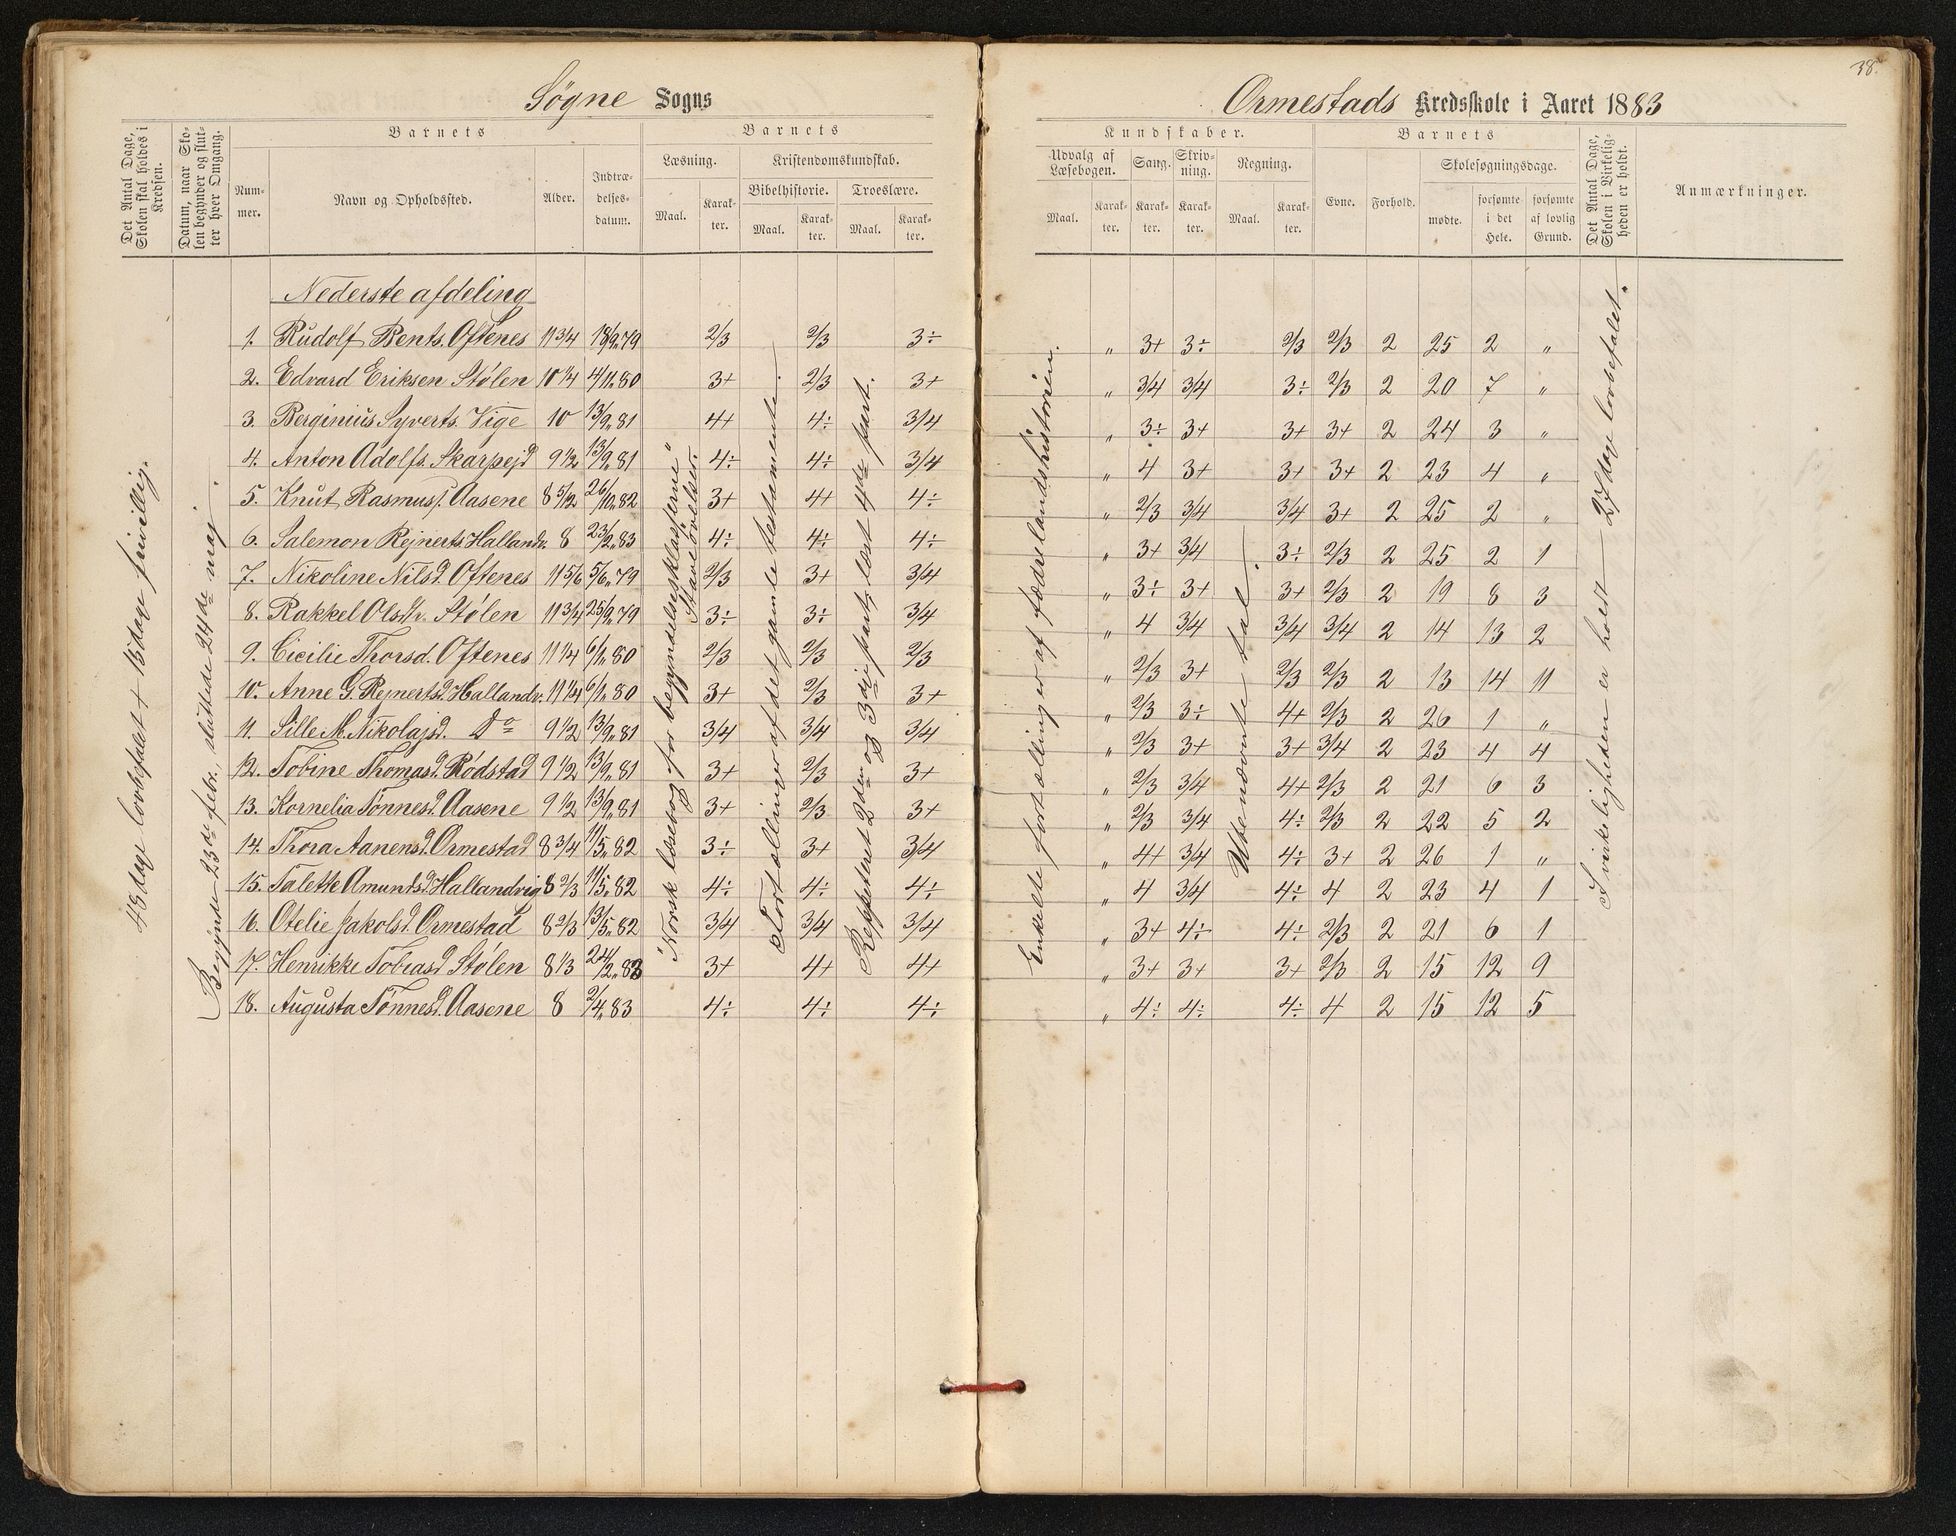 38.
Søgne Sogns
Ormestads Kredsskole i Aaret 1883
Det Antal Dage, Skolen skal holdes i Kredsen.
Datum, naar Skolen begynder og slutter hver Omgang.
Barnets
Nummer.
Navn og Opholdssted.
Alder.
Indtrædelsesdatum.
Barnets
Læsning.
Maal.
Karakter.
Kristendomskundskab.
Bibelhistorie.
Maal.
Karakter.
Troeslære.
Maal.
Karakter.
Kundskaber.
Udvalg af Læsebogen.
Maal.
Karakter.
Sang.
Karakter.
Skrivning.
Karakter.
Regning.
Maal.
Karakter.
Barnets
Evne.
Forhold.
Skolesøgningsdage.
mødte.
forsømte i det Hele.
forsømte af lovlig Grund.
Det Antal Dage, Skolen i Virkeligheden er holdt.
Anmærkninger.
45 dage lovbefalet + 15 dage frivillig.
Begyndte 23de febr., sluttede 24de maj.
"Norsk læsebog for begyndelsesklasserne" Staveøvelser.
Fortællinger af det gamle testamente.
Reppeteret 2den og 3dje part, læst 4de part.
Enkelte fortællinger af fædrelandshistorien.
Ubenævnte tal.
I virkeligheden er holdt 27 dage lovbefalet.
Nederste afdeling
1. Rudolf Bents. Oftenes 11 3/4 18/9.79 2/3 2/3 3÷ " 3+ 3÷ 2/3 2/3 2 25 2 "
2. Edvard Eriksen Stølen 10 1/4 4/11.80 3+ 2/3 3+ " 3/4 3/4 3÷ 2/3 2 20 7 "
3. Berginius Syverts. Vige 10 13/9.81 4+ 4÷ 3/4 " 3÷ 3+ 3+ 3+ 2 24 3 "
4. Anton Adolfs. Skarpejd 9 1/2 13/9.81 4÷ 4÷ 3/4 " 4 3+ 3+ 3+ 2 23 4 "
5. Knut Rasmuss. Aasene 8 5/12 26/10.82 3+ 4+ 4÷ " 2/3 3/4 3/4 3+ 2 25 2 "
6. Salemon Rejnerts. Hallandv. 8 23/2.83 4÷ 4÷ 4÷ " 3+ 3/4 3÷ 2/3 2 25 2 1
7. Nikoline Nilsd. Oftenes 11 5/6 5/6.79 2/3 3+ 3/4 " 3÷ 3+ 3+ 2/3 2 19 8 3
8. Rakkel Olsdtr. Stølen 11 3/4 25/9.79 3÷ 3÷ 3/4 " 4 3/4 3/4 3/4 2 14 13 2
9. Cicilie Thorsd. Oftenes 11 1/4 6/1.80 2/3 2/3 2/3 " 2/3 3+ 2/3 2/3 2 13 14 11
10. Anne G. Rejnertsd. Hallandv. 11 1/4 6/1.80 3+ 2/3 3+ " 2/3 3÷ 4+ 2/3 2 26 1 "
11. Sille M. Nikolajsd. Do 9 1/2 13/9.81 3/4 3/4 3/4 " 2/3 3+ 3+ 3/4 2 23 4 4
12. Tobine Thomasd. Rødstad 9 1/2 13/9.81 3+ 2/3 3+ " 2/3 3/4 4+ 2/3 2 21 6 3
13. Kornelia Tønnesd. Aasene 9 1/2 13/9.81 3+ 2/3 3+ " 2/3 3/4 4÷ 2/3 2 22 5 2
14. Thora Aanensd. Ormestad 8 3/4 11/5.82 3÷ 3+ 3/4 " 4+ 3/4 4÷ 3+ 2 26 1 "
15. Talette Amundsd. Hallandvig 8 2/3 11/5.82 4÷ 4÷ 4÷ " 4 3/4 4÷ 4 2 23 4 1
16. Otelie Jakobsd. Ormestad 8 2/3 13/5.82 3/4 3/4 3/4 " 3+ 4÷ 4÷ 2/3 2 21 6 1
17. Henrikke Tobiasd. Stølen 8 1/3 24/2.83 3+ 4+ 4+ " 3+ 3+ 3+ 2/3 2 15 12 9
18. Augusta Tønnesd. Aasene 8 2/4.83 4÷ 4÷ 4÷ " 4÷ 4÷ 4÷ 4 2 15 12 5